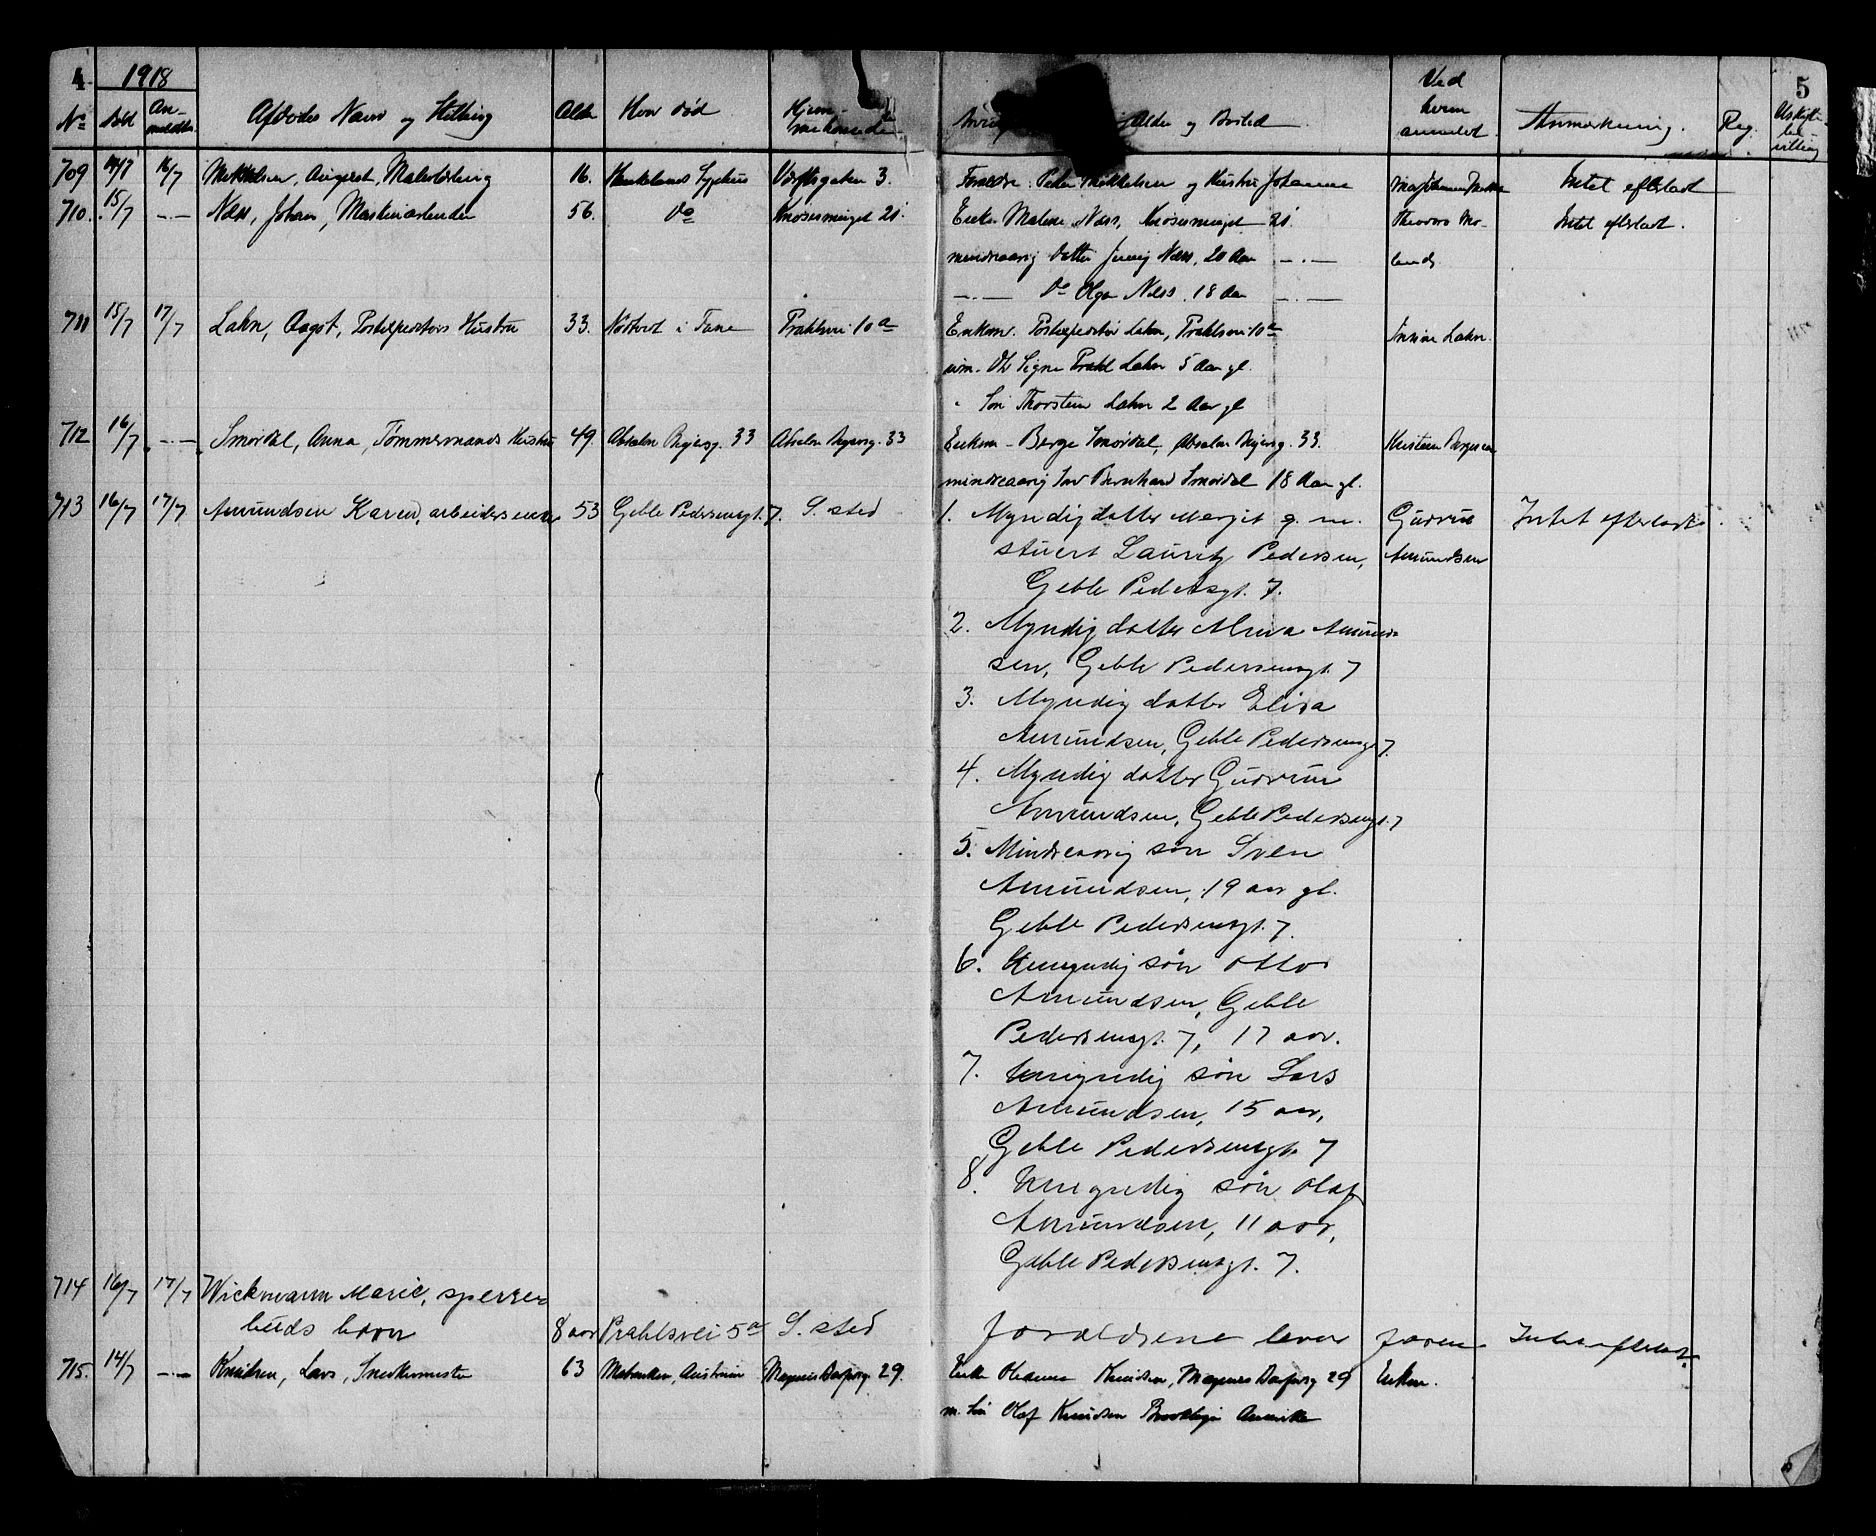 4 1918 5
No Død An- meldt Afdødes Navn og Stilling Alder Hvor død Hjem- Alder og Bosted Ved hvem anmeldt Anmerkning. Reg.
709 14/7 16/7 Mikkelsen, August, Malerlærling 16. Haukelands Sygehus Værftsgaten 3. Forældre: Peder Mikkelsen og Hustru Johanne Intet efterladt
710. 15/7 -"- Næss, Johan, Maskinarbeider 56. Do Knøsesmuget 21. Enke Malene Næss, Knøsesmuget 21. Theodora Mo- Intet efterladt.
mindreaarig Datter Jenny Næss, 20 Aar -"- lands
-"- Do Olga Næss, 18 Aar -"-
711 15/7 17/7 Lahn, Aagot, Postexpeditørs Hustru 33. Nottveit i Fane Prahlsvei 10a Enkem. Postexpeditør Lahn, Prahlsvei 10a Lahn.
um. Dt. Signe Prahl Lahn 5 Aar gl.
" Søn Thorstein Lahn 2 Aar gl
712 16/7 -"- Smørdal, Anna, Tømmermands Hustru 49. Absalon Beyersg. 33 Absalon Beyersg. 33 Enkem - Berge Smørdal, Absalon Beyersg. 33. Kristian Børgesen
mindreaarig Søn Bernhard Smørdal 18 Aar gl.
713 16/7 17/7 Amundsen Karen, arbeidersenke 53 Geble Pedersensgt. 7. S. sted 1. Myndig datter Margit g. m. Gudrun Intet efterladt.
stuert Lauritz Pedersen, Amundsen
Geble Pedersgt. 7.
2. Myndig datter Alma Amund-
sen, Geble Pedersensgt. 7
3. Myndig datter Elisa
Amundsen, Geble Pedersensgt 7.
4. Myndig datter Gudrun
Amundsen, Geble Pedersensgt. 7
5. Mindreaarig søn Sven
Amundsen, 19 aar gl.
Geble Pedersensgt. 7.
6. Umyndig søn Otto
Amundsen, Geble
Pedersensgt. 7, 17 aar.
7. Umyndig søn Lars
Amundsen, 15 aar,
Geble Pedersensgt. 7
8. Umyndig søn Olaf
Amundsen, 11 aar,
Geble Pedersensgt. 7.
714 16/7 17/7 Wickmann Marie,
buds barn 8 aar Prahlsvei 5a S. sted Forældrene lever Faren Intet efterladt.
715. 14/7 -"- Knudsen, Lars, Snedkermester 63 Magnus Barfotsg 29. Enke Knudsen, Magnus Barfotsg 29 Enken.
m. Søn Olaf Knudsen Brooklyn Amerika